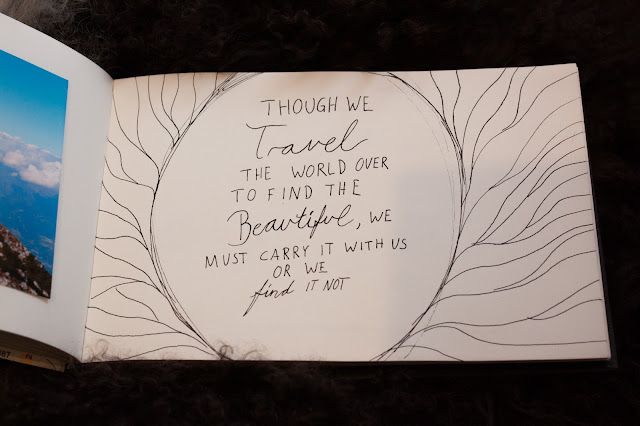 THOUGH WE
Travel
THE WORLD OVER
TO FIND THE
Beautiful, WE
MUST CARRY IT WITH US
OR WE
find IT NOT